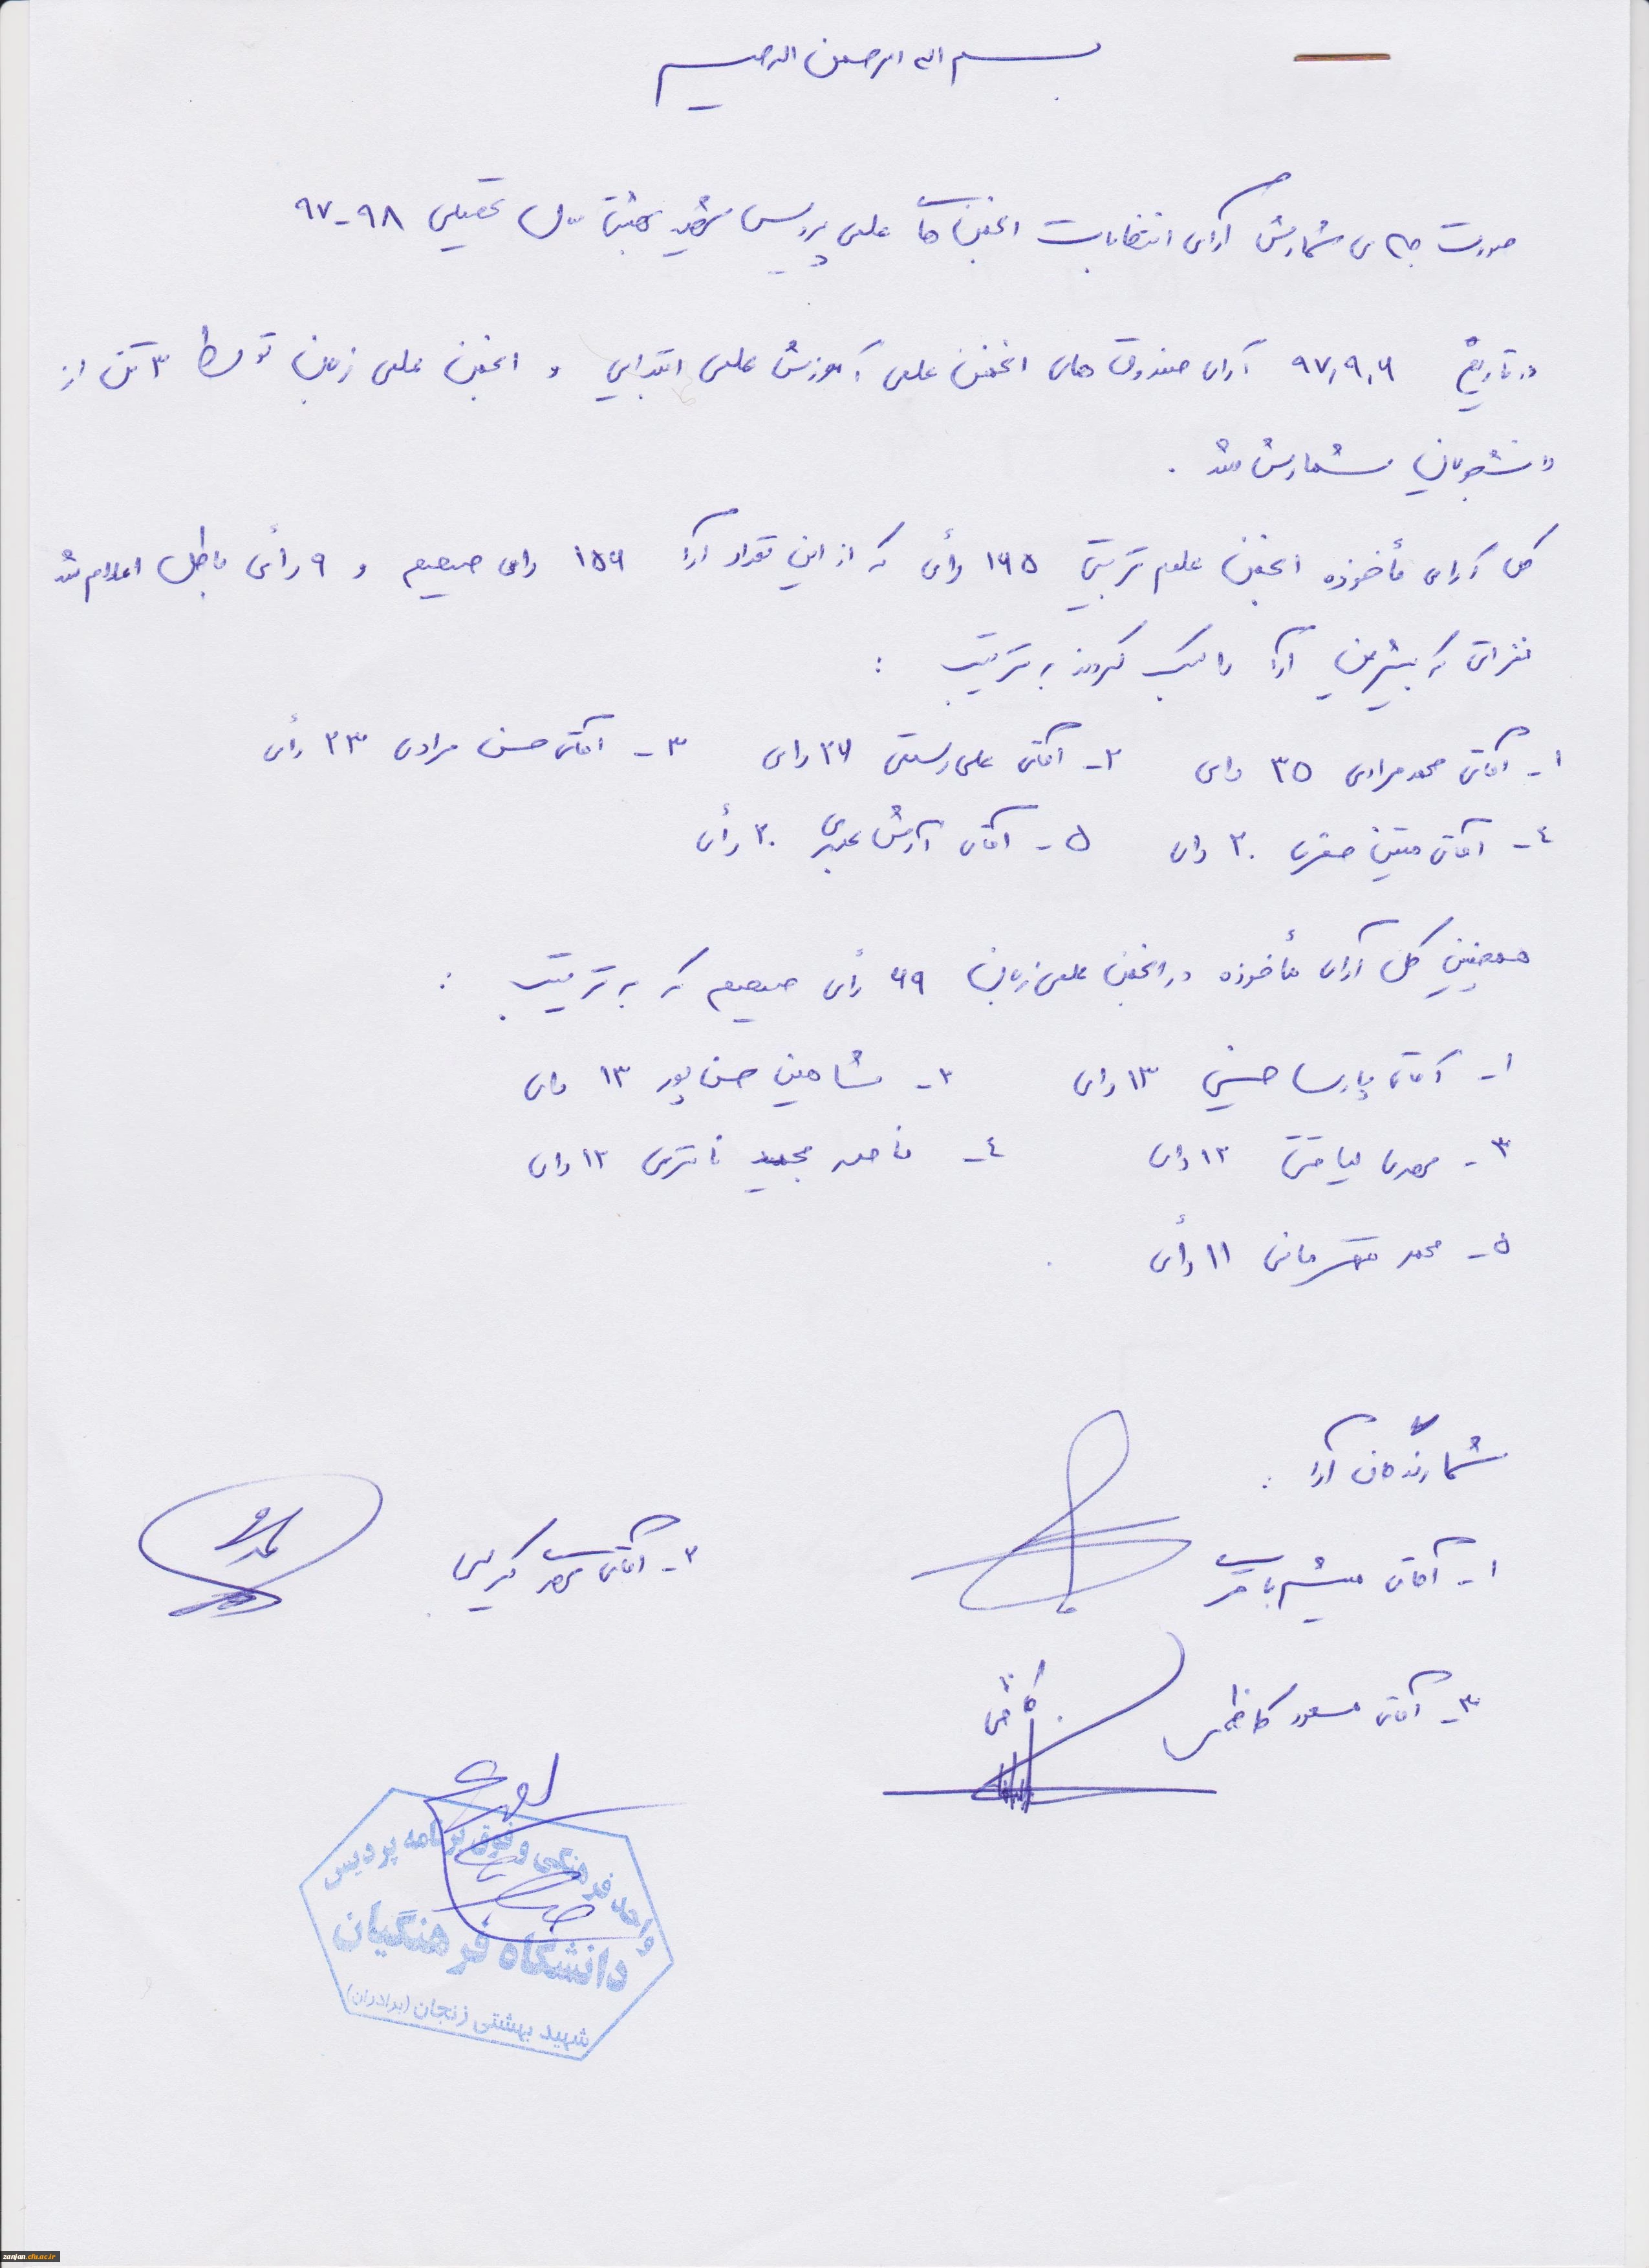 بسم اله الرحمن الرحیم
صورت جلسه ی شمارش آرای انتخابات انجمن های علمی پردیس شهید بهشتی سال تحصیلی ۹۸-۹۷
در تاریخ ۹۷,۹,۶ آرای صندوق های انجمن علمی آموزش علمی ابتدایی و انجمن علمی زبان توسط ۳ تن از
دانشجویان شمارش شد .
کل آرای مأخوذه انجمن علوم تربیتی ۱۶۵ رأی که از این تعداد آرا ۱۵۶ رای صحیح و ۹ رأی باطل اعلام شد
نفراتی که بیشترین آرا را کسب کردند به ترتیب :
۱- آقای محمد مرادی ۳۵ رای ۲- آقای علی رستمی ۲۶ رای ۳- آقای حسن مرادی ۲۳ رأی
۴- آقای متین صفری ۲۰ رای ۵- آقای آرش ۲۰ رأی
همچنین کل آرای مأخوذه در انجمن علمی زبان ۶۹ رأی صحیح که به ترتیب :
۱- آقای پارسا حسنی ۱۳ رای ۲- شاهین حسن پور ۱۳ رای
۳- مهدی لیاقتی ۱۲ رای ۴- مجید ۱۲ رای
۵- محمد ۱۱ رأی
شمارندگان آرا :
۱- آقای میثم باقری ۲- آقای کریمی
۳- آقای مسعود کاظمی
واحد فرهنگی و فوق برنامه پردیس
دانشگاه فرهنگیان
شهید بهشتی زنجان (برادران)
zanjan.cfu.ac.ir